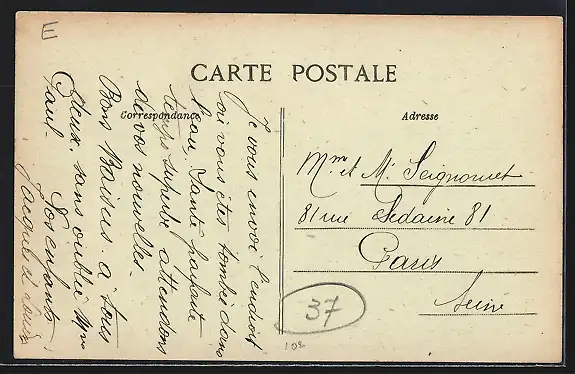 E
CARTE POSTALE
Correspondance
Adresse
Je vous envoi l'endroit
où vous êtes tombé dans
l'eau. Santé parfaite
temps superbe attendons
de vos nouvelles.
Bons Baisers à tous
deux. sans oublié Mme
Paul. Vos enfants
Jacques et Louis
Mme et Mr Seignouret
81 rue Sedaine 81
Paris
Seine
37